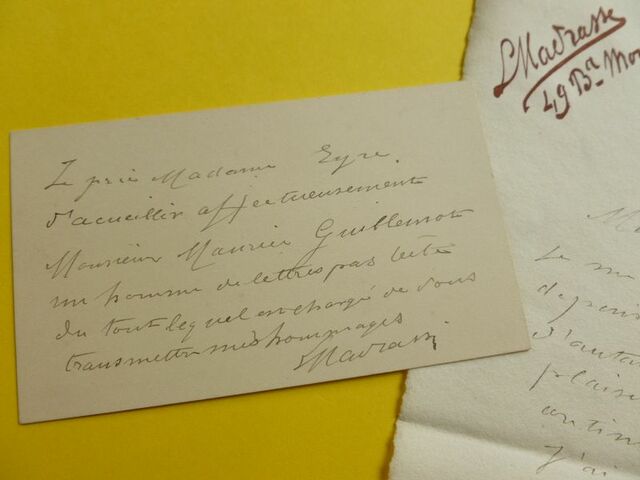 Je prie Madame Eyre,
d'acueillir affectueusement
Monsieur Maurice Guillemot
un homme de lettres pas bête
du tout lequel est chargé de vous
transmettre mes hommages
LMadrassi
LMadrassi
49 Bd Mo
Je me
d'auta
plaisi
J'ai